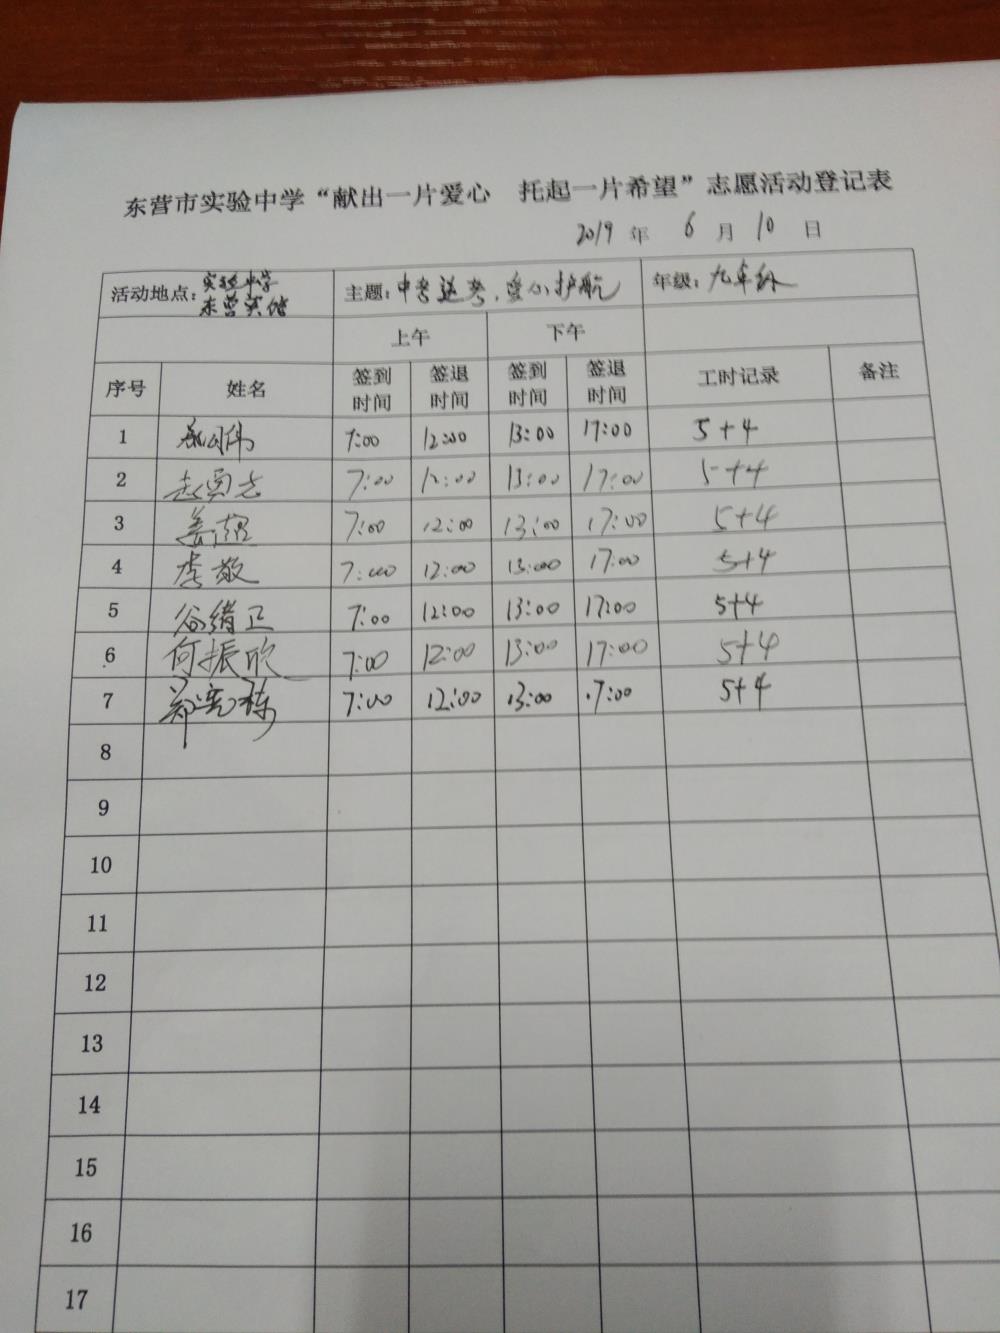 东营市实验中学“献出一片爱心 托起一片希望”志愿活动登记表
2019 年 6 月 10 日
活动地点: 实验中学 主题: 中考送考、爱心护航 年级: 九年级
东营英才
上午 下午
序号 姓名 签到时间 签退时间 签到时间 签退时间 工时记录 备注
1 7:00 12:00 13:00 17:00 5+4
2 赵勇志 7:00 12:00 13:00 17:00 5+4
3 姜超 7:00 12:00 13:00 17:00 5+4
4 李敬 7:00 12:00 13:00 17:00 5+4
5 谷绪卫 7:00 12:00 13:00 17:00 5+4
6 何振欣 7:00 12:00 13:00 17:00 5+4
7 郑亮栋 7:00 12:00 13:00 17:00 5+4
8
9
10
11
12
13
14
15
16
17